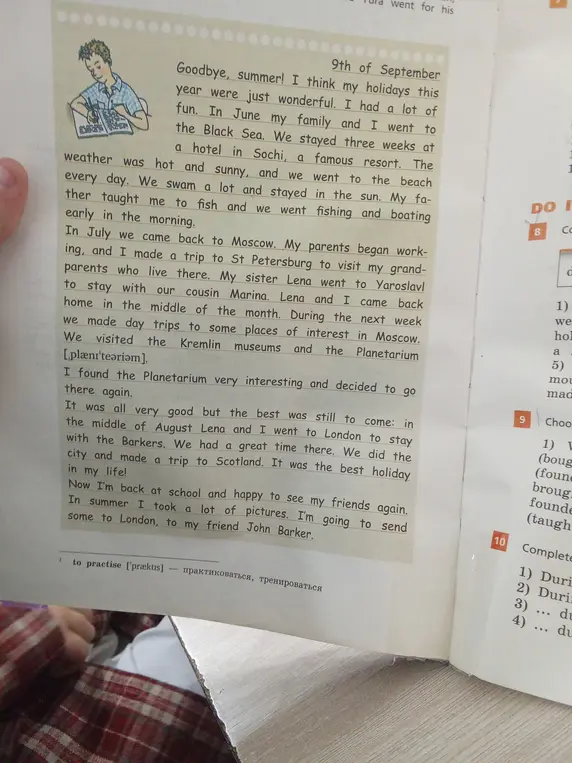 Yura went for his
9th of September
Goodbye, summer! I think my holidays this
year were just wonderful. I had a lot of
fun. In June my family and I went to
the Black Sea. We stayed three weeks at
a hotel in Sochi, a famous resort. The
weather was hot and sunny, and we went to the beach
every day. We swam a lot and stayed in the sun. My fa-
ther taught me to fish and we went fishing and boating
early in the morning.
In July we came back to Moscow. My parents began work-
ing, and I made a trip to St Petersburg to visit my grand-
parents who live there. My sister Lena went to Yaroslavl
to stay with our cousin Marina. Lena and I came back
home in the middle of the month. During the next week
we made day trips to some places of interest in Moscow.
We visited the Kremlin museums and the Planetarium
[ˌplænɪˈteəriəm].
I found the Planetarium very interesting and decided to go
there again.
It was all very good but the best was still to come: in
the middle of August Lena and I went to London to stay
with the Barkers. We had a great time there. We did the
city and made a trip to Scotland. It was the best holiday
in my life!
Now I'm back at school and happy to see my friends again.
In summer I took a lot of pictures. I'm going to send
some to London, to my friend John Barker.
1 to practise [ˈpræktɪs] — практиковаться, тренироваться
DO
8
1)
we
hol
a
5)
mou
mad
9 Choo
1)
(boug
(foun
broug
founde
(taugh
10 Complete
1) Duri
2) Duri
3) ... du
4) ... du